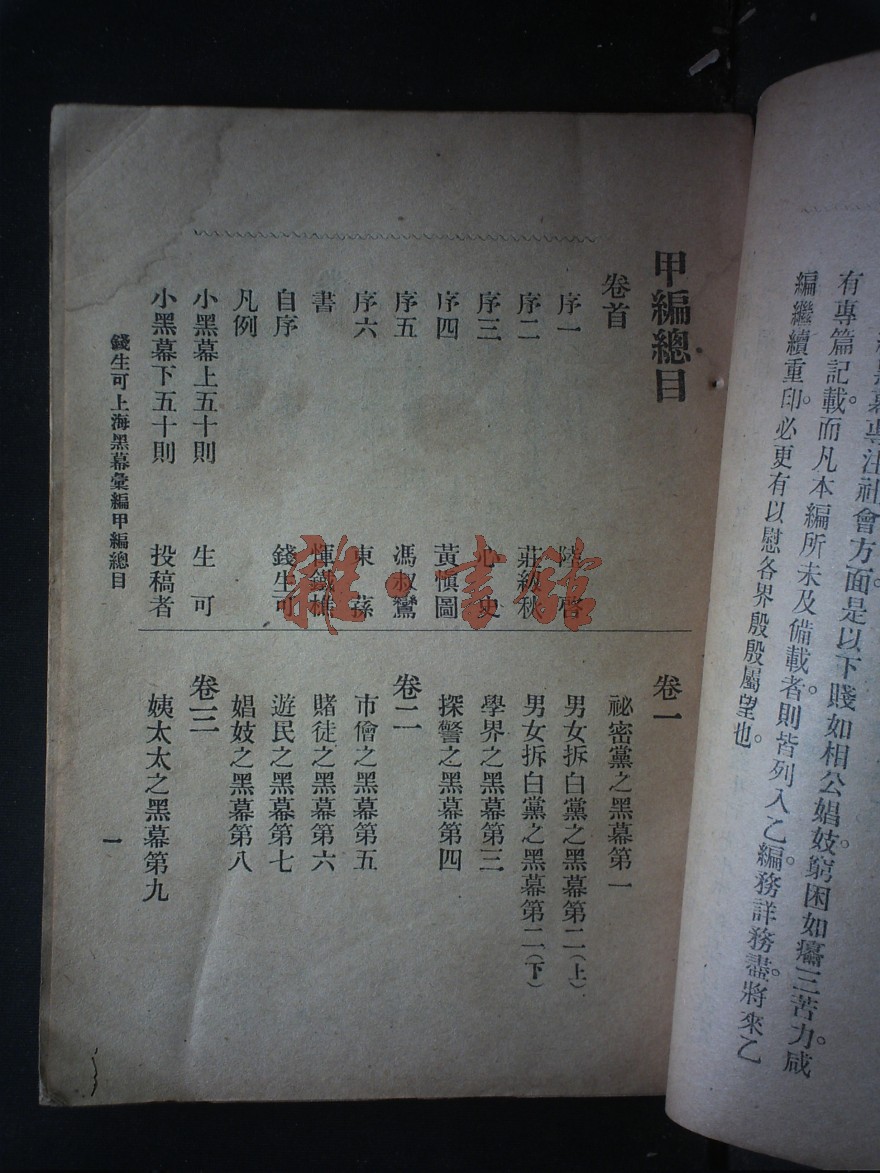 有專篇記載。而凡本編所未及備載者。則皆列入乙編。務詳務盡。將來乙
編繼續重印。必更有以慰各界殷殷屬望也。
甲編總目
卷首
序一
序二 莊紉秋
序三 心史
序四 黃慎圖
序五 馮叔鸞
序六 東蓀
書 惲鐵樵
自序 錢生可
凡例
小黑幕上五十則 生可
小黑幕下五十則 投稿者
卷一
祕密黨之黑幕第一
男女拆白黨之黑幕第二(上)
男女拆白黨之黑幕第二(下)
學界之黑幕第三
探警之黑幕第四
卷二
市儈之黑幕第五
賭徒之黑幕第六
遊民之黑幕第七
娼妓之黑幕第八
卷三
姨太太之黑幕第九
錢生可上海黑幕彙編甲編總目
一
雜·書館